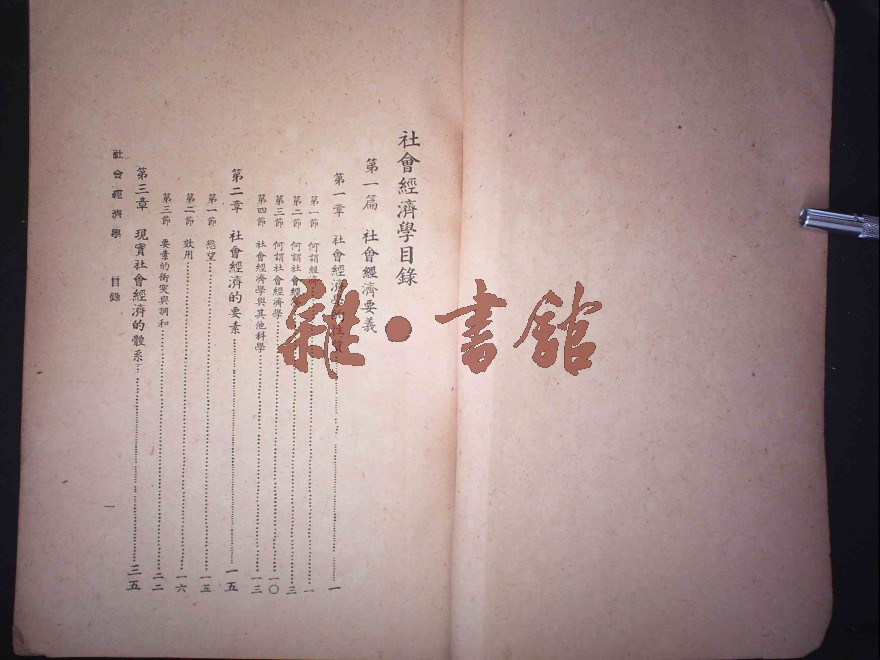 社會經濟學目錄
第一篇 社會經濟要義
第一章 社會經濟學的性質 一
第一節 何謂經濟 一
第二節 何謂社會經 三
第三節 何謂社會經濟學 一〇
第四節 社會經濟學與其他科學 一三
第二章 社會經濟的要素 一五
第一節 慾望 一五
第二節 效用 一六
第三節 要素的衝突與調和 二二
第三章 現實社會經濟的體系 三五
社會經濟學 目錄
一
雜·書館